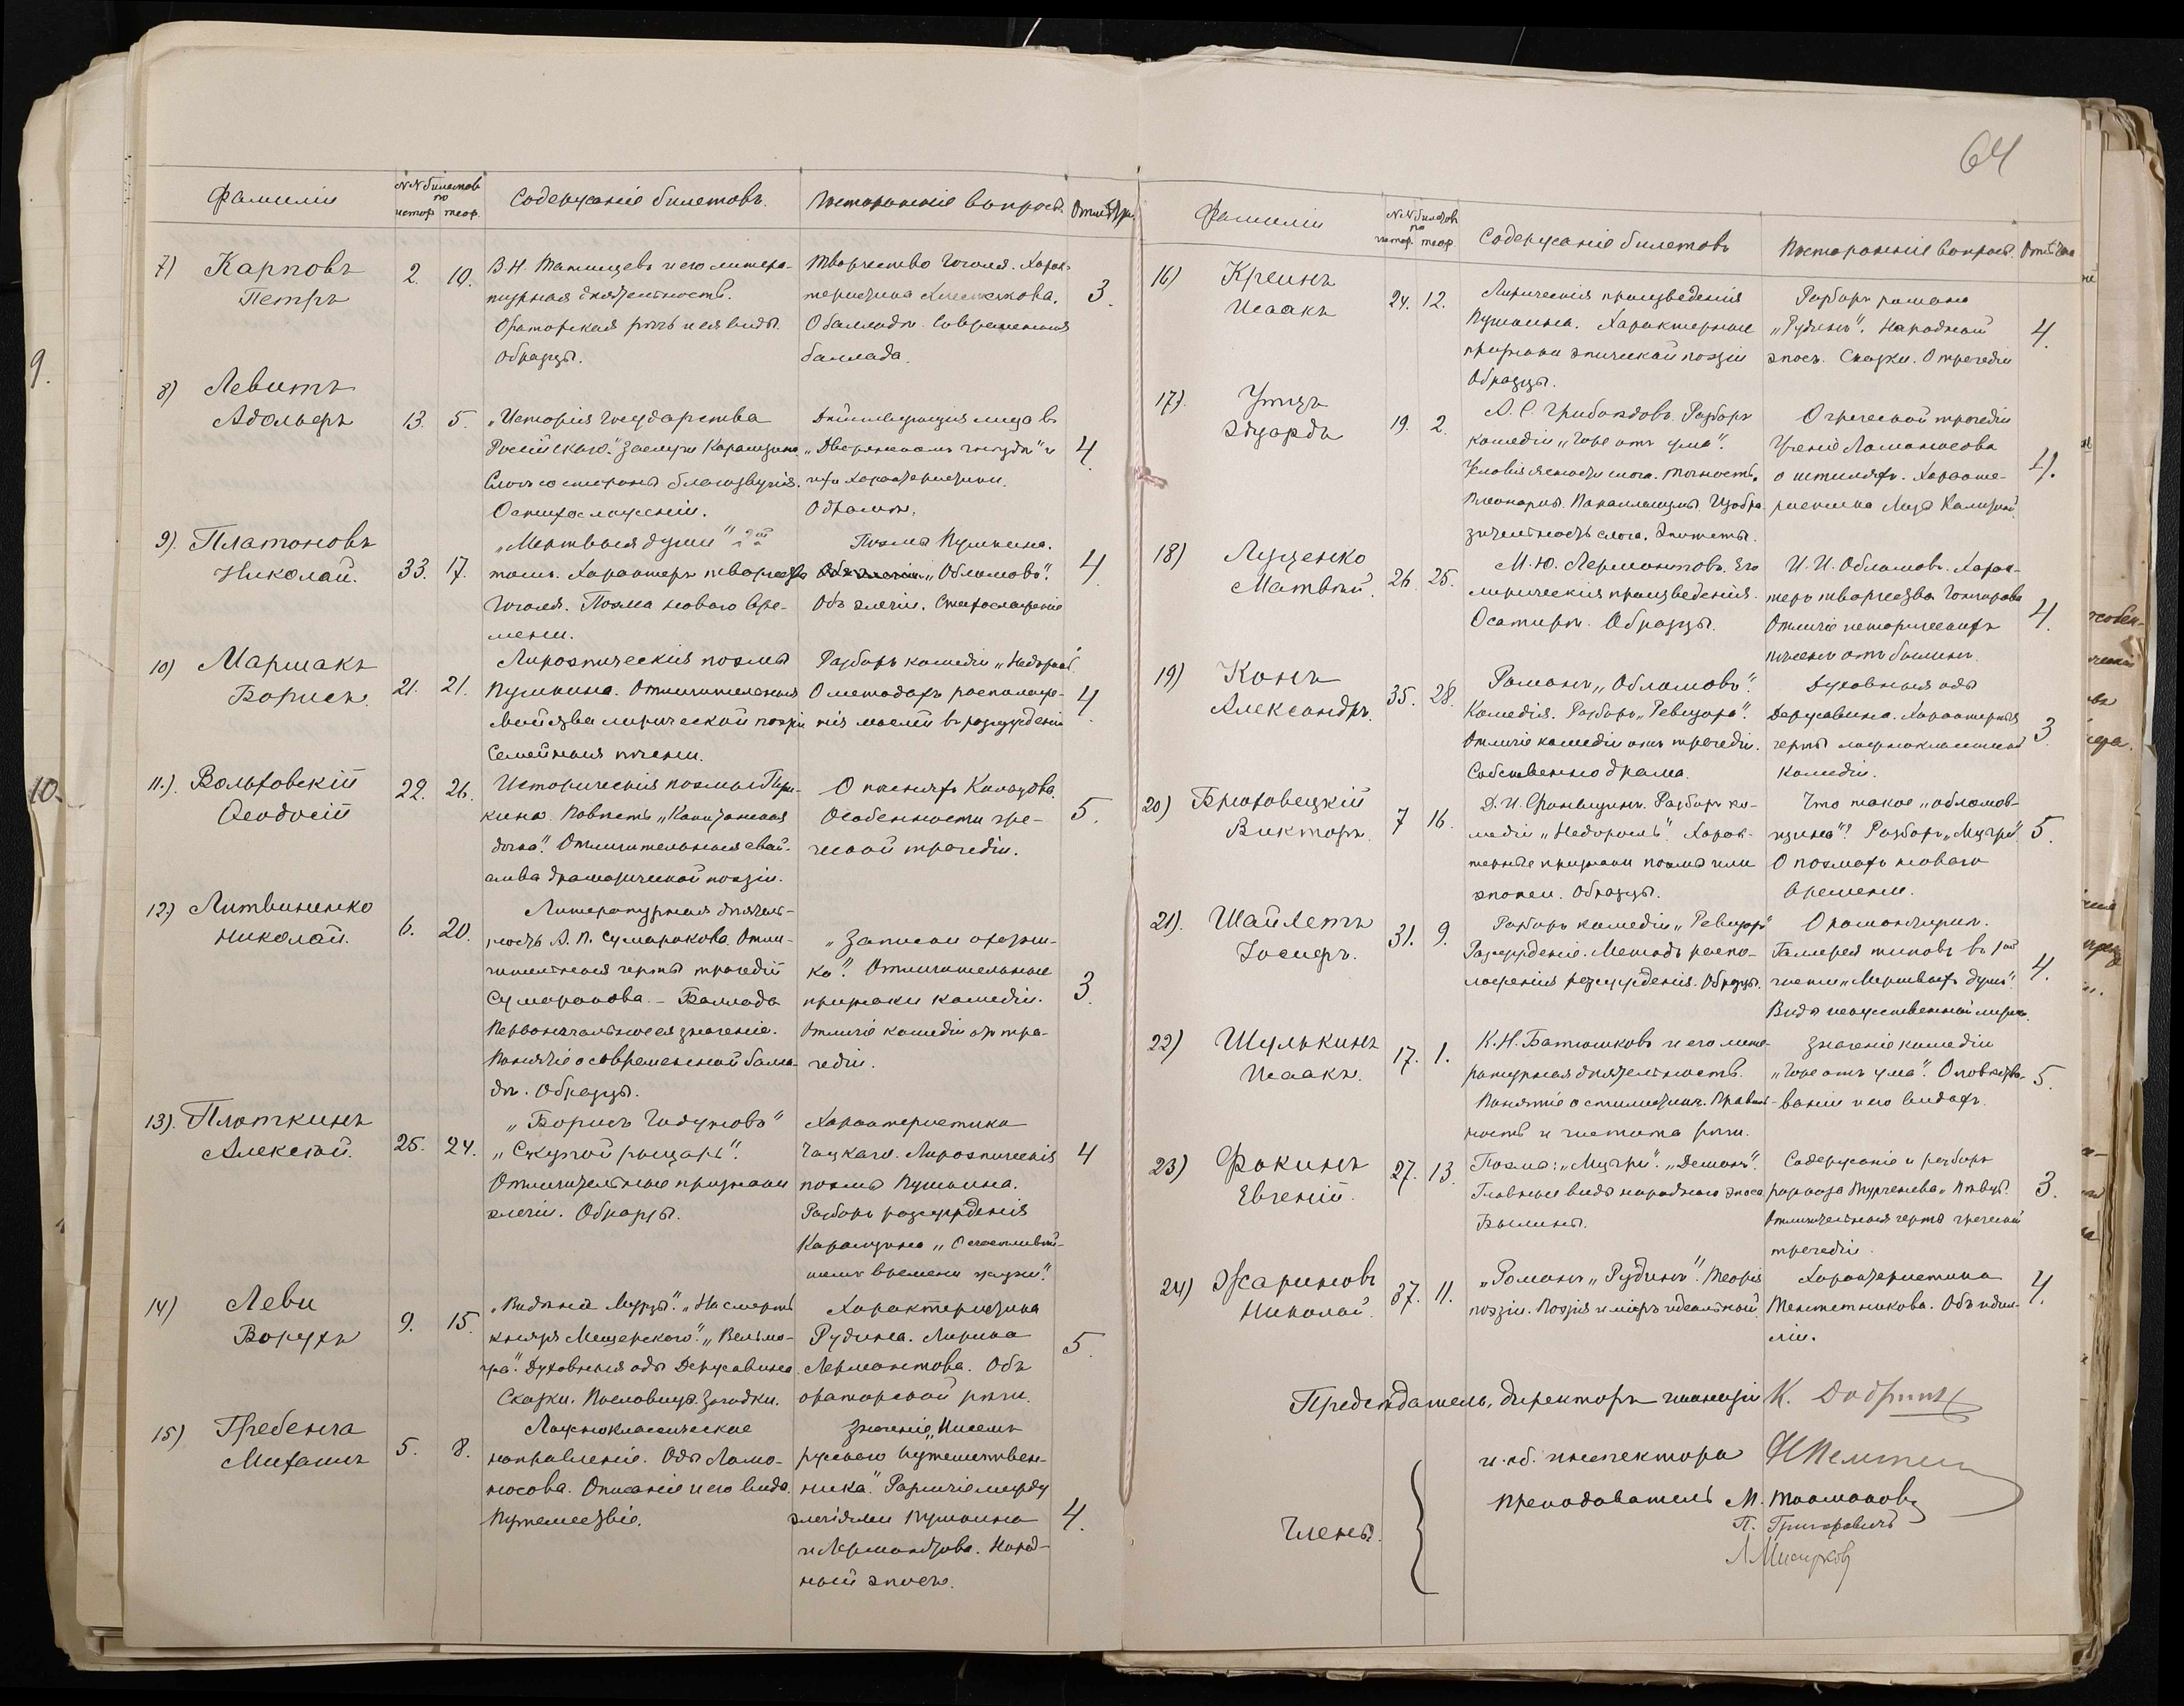 64
Фамилiи
№№ билетов
по
истор. теор.
Содержанiе билетовъ.
Постороннiе вопросы.
7) Карповъ
Петръ
2. 10.
В. Н. Татищевъ и его литера-
турная дѣятельность.
Ораторская рѣчь и ея виды.
Образцы.
Творчество Гоголя. Харак-
теристика Хлестакова.
О балладѣ. Современная
баллада.
3.
9.
8) Левитъ
Адольфъ
13. 5.
„Исторiя Государства
Россiйскаго." Заслуги Карамзина.
Слогъ со стороны благозвучiя.
О стихосложенiи.
Дѣйствующiя лица въ
„Дворянскомъ гнѣздѣ" и
ихъ характеристики.
О драмѣ.
4
9). Платоновъ
Николай.
33. 17.
„Мертвыя души" 2й
томъ. Характеръ творчества
Гоголя. Поэма новаго вре-
мени.
Поэмы Пушкина.
„Обломовъ".
Объ элегiи. Стихосложенiе
4
10) Маршакъ
Борисъ.
21. 21.
Лироэпическiя поэмы
Пушкина. Отличительныя
свойства лирической поэзiи
Семейныя пѣсни.
Разборъ комедiи „Недоросль".
О методахъ расположе-
нiя мыслей въ разсужденiи
4
10.
11.). Вольховскiй
Ѳеодосiй
22. 26.
Историческiя поэмы Пуш-
кина. Повѣсть „Капитанская
дочка". Отличительныя свой-
ства драматической поэзiи.
О пѣсняхъ Кольцова.
Особенности гре-
ческой трагедiи.
5.
12) Литвиненко
Николай.
6. 20.
Литературная дѣятель-
ность А. П. Сумарокова. Отли-
чительныя черты трагедiй
Сумарокова. - Баллада
Первоначальное ея значенiе.
Понятiе о современной балла-
дѣ. Образцы.
„Записки охотни-
ка". Отличительные
признаки комедiи.
Отличiе комедiи отъ тра-
гедiи.
3.
13). Плоткинъ
Алексѣй.
25. 24.
„Борисъ Годуновъ"
„Скупой рыцарь".
Отличительные признаки
элегiи. Образцы.
Характеристика
Чацкаго. Лироэпическiя
поэмы Пушкина.
Разборъ разсужденiя
Карамзина „О счастливѣй-
шемъ времени жизни".
4
14) Леви
Борухъ
9. 15.
„Видѣнiе Мурзы". „На смерть
князя Мещерскаго". „Вельмо-
жа". Духовныя оды Державина
Сказки. Пословицы. Загадки.
Характеристика
Рудина. Лирика
Лермонтова. Объ
ораторской рѣчи.
5.
15) Гребенча
Михаилъ
5. 8.
Ложноклассическое
направленiе. Оды Ломо-
носова. Описанiе и его виды.
Путешествiе.
Значенiе „Писемъ
русскаго путешествен-
ника". Различiе между
элегiями Пушкина
и Лермонтова. Народ-
ный эпосъ.
4.
Фамилiи
№№ билетовъ
по
истор. теор.
Содержанiе билетовъ
Постороннiе вопросы.
16) Креинъ
Исаакъ
24. 12.
Лирическiя произведенiя
Пушкина. Характерные
признаки эпической поэзiи
Образцы.
Разборъ романа
„Рудинъ". Народный
эпосъ. Сказки. О трагедiи
4.
17). Утцъ
Эдуардъ
19. 2.
А. С. Грибоѣдовъ. Разборъ
комедiи „Горе отъ ума".
Условiя ясности слога. Точность.
Плеоназмы. Параллелизмы. Изобра-
зительность слога. Эпитеты.
О греческой трагедiи
Ученiе Ломоносова
о штиляхъ. Характе-
ристика
4.
18) Луценко
Матвѣй.
26. 25.
М. Ю. Лермонтовъ. Его
лирическiя произведенiя.
О сатирѣ. Образцы.
И. И. Обломовъ. Харак-
теръ творчества Гончарова
Отличiе историческихъ
пѣсенъ отъ былинъ.
4.
19) Конъ
Александръ.
35. 28.
Романъ „Обломовъ".
Комедiя. Разборъ „Ревизора".
Отличiе комедiи отъ трагедiи.
Собственно драма.
Духовныя оды
Державина. Характерныя
черты ложноклассической
комедiи.
3.
20) Брюховецкiй
Викторъ.
7 16.
Д. И. Фонвизинъ. Разборъ ко-
медiи „Недоросль". Харак-
терные признаки поэмы или
эпопеи. Образцы.
Что такое „обломов-
щина"? Разборъ „Мцыри".
О поэмахъ новаго
времени.
5.
21). Шайлетъ
Iосифъ.
31. 9.
Разборъ комедiи „Ревизоръ"
Разсужденiе. Методъ распо-
ложенiя разсужденiя. Образцы.
О романтизмѣ.
Галлерея типовъ въ 1ой
части „Мертвыхъ душъ".
Виды искусственной лирики.
4.
22) Шулькинъ
Исаакъ.
17. 1.
К. Н. Батюшковъ и его лите-
ратурная дѣятельность.
Понятiе о стилистикѣ. Правиль-
ность и чистота рѣчи.
Значенiе комедiи
„Горе отъ ума". О повѣство-
ванiи и его видахъ.
5.
23) Фокинъ
Евгенiй.
27. 13.
Поэмы: „Мцыри". „Демонъ".
Главные виды народнаго эпоса
Былины.
Содержанiе и разборъ
разсказа Тургенева „Пѣвцы".
Отличительныя черты греческой
трагедiи.
3.
24) Жариновъ
Николай.
37. 11.
„Романъ „Рудинъ". Теорiя
поэзiи. Поэзiя и мiръ идеальный.
Характеристика
Тентетникова. Объ идил-
лiи.
4.
Предсѣдатель, директоръ гимназiи К.
и. об. инспектора
Члены.
преподаватель М.
П. Григоровичъ